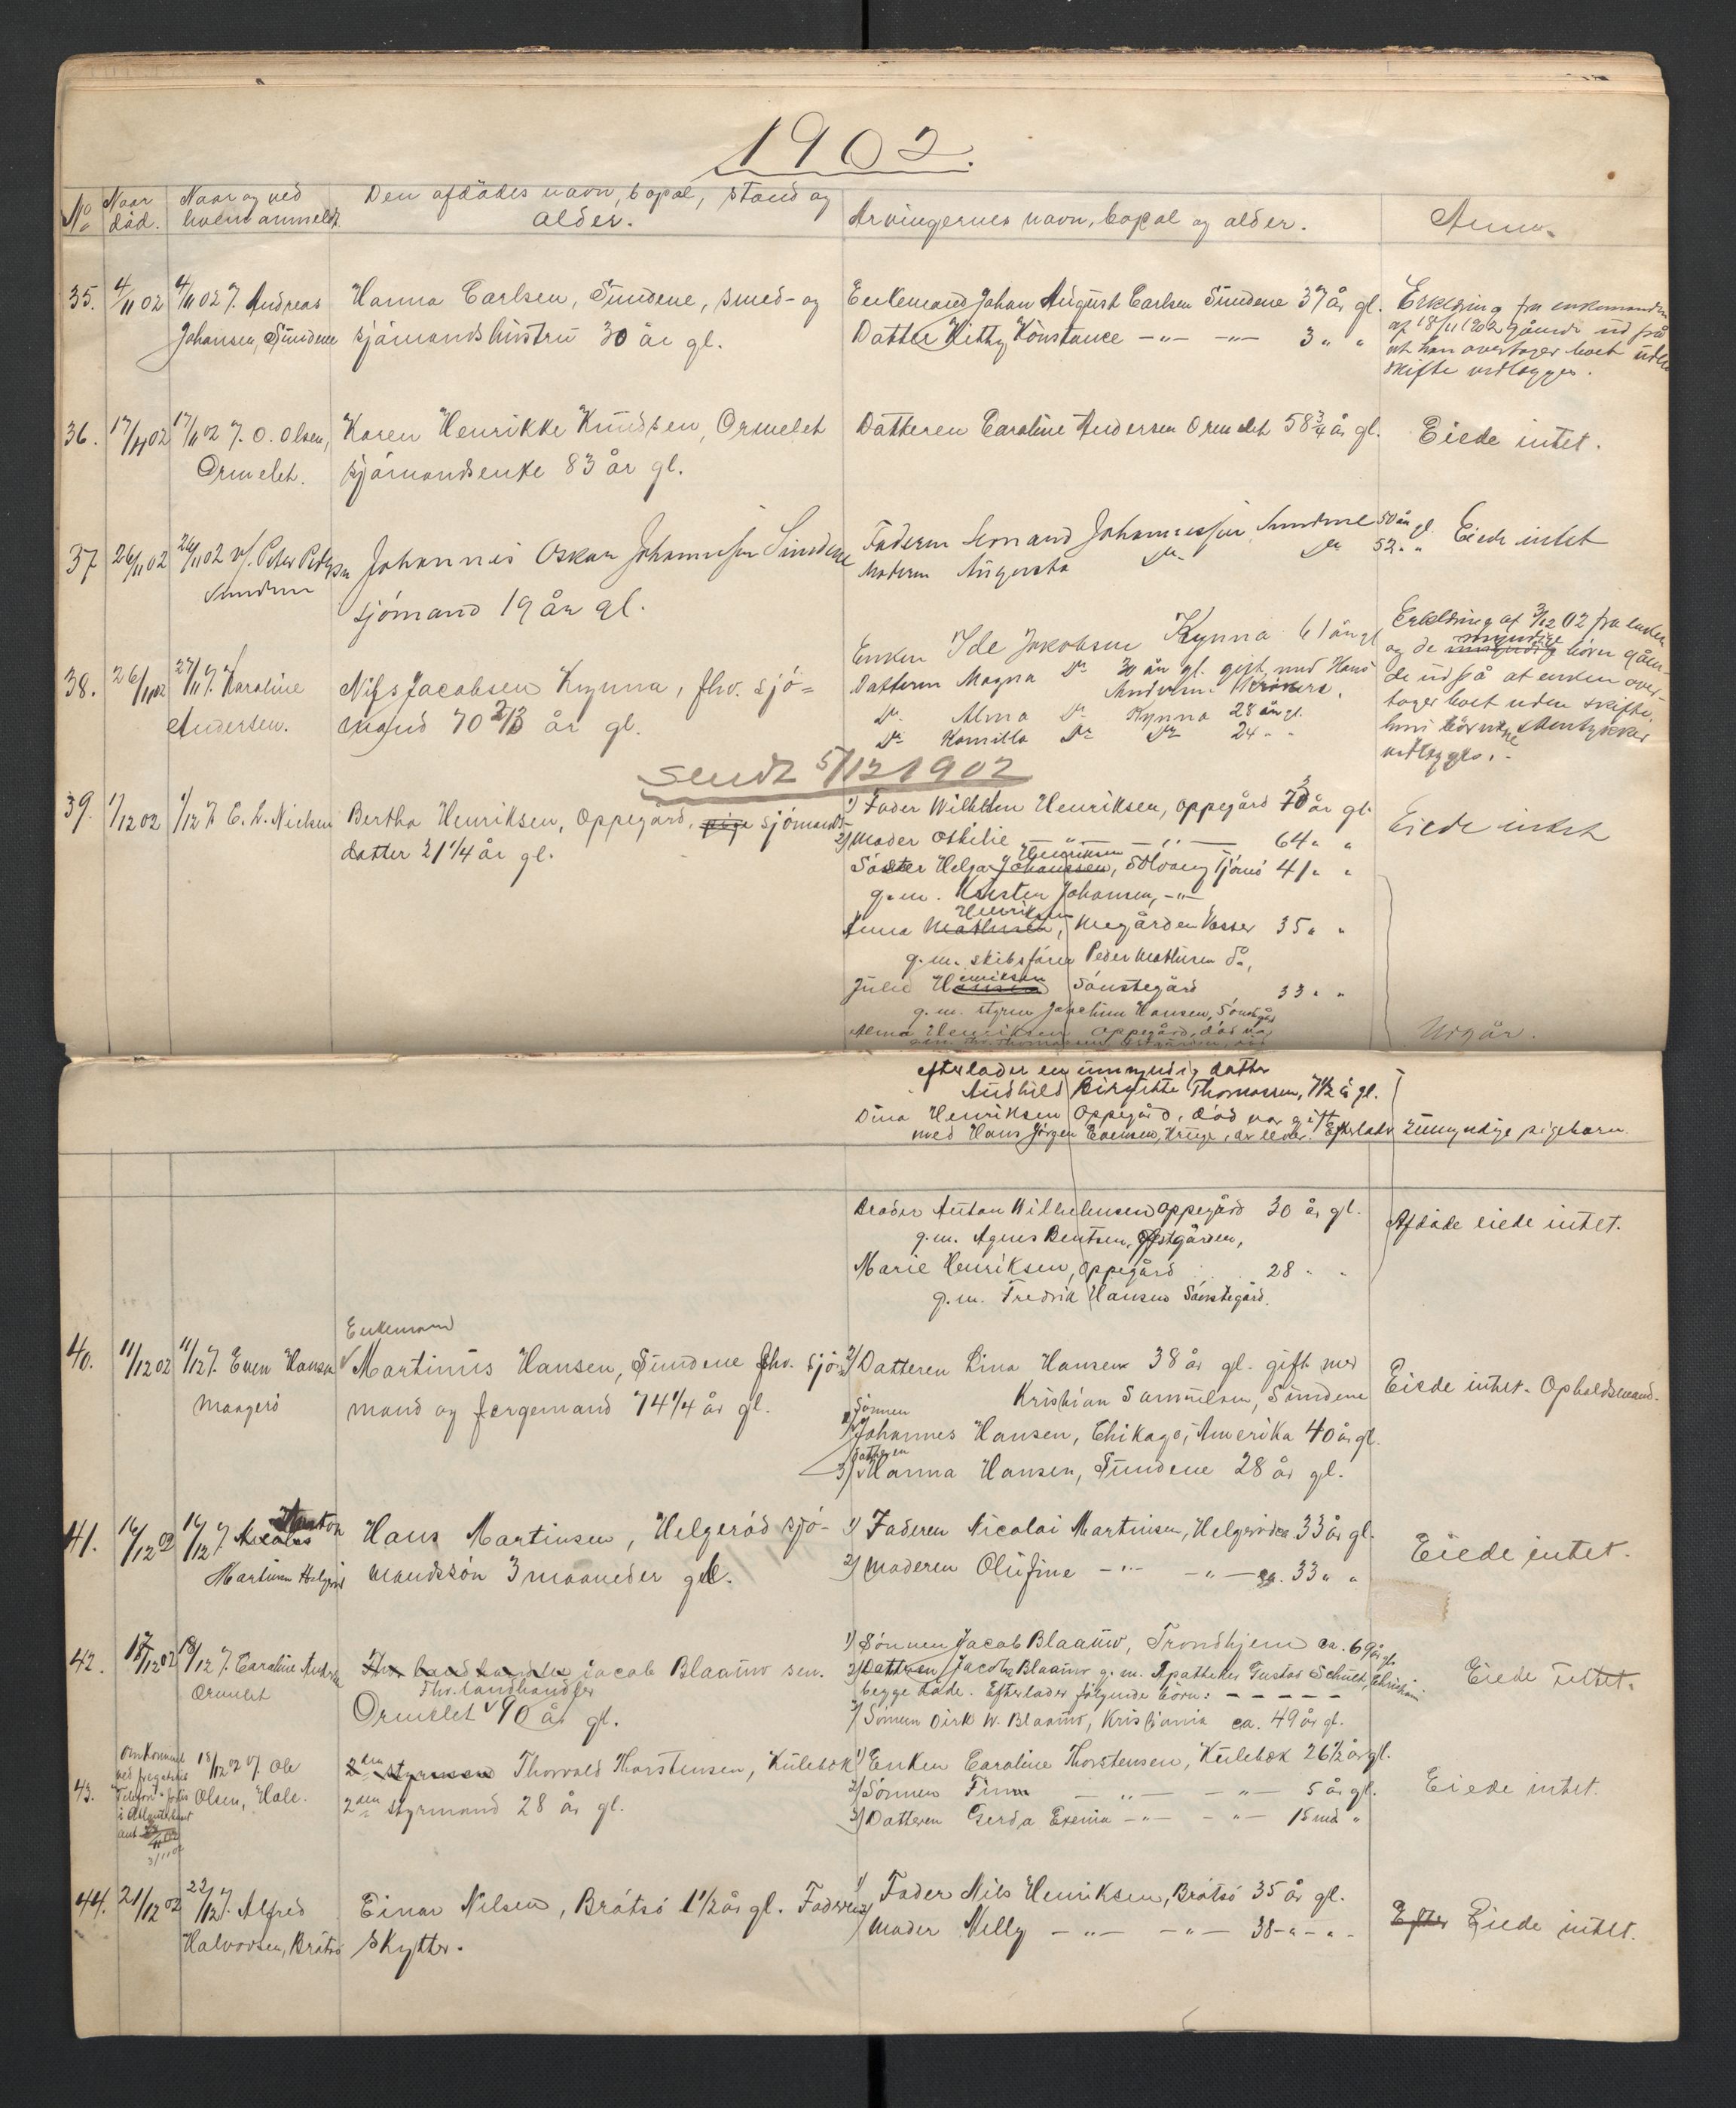 1902.
No
Naar død.
Naar og ved hvem anmeldt.
Den afdödes navn, bopæl, stand og alder.
Arvingernes navn, bopæl og alder.
Anm.
35. 4/11 02 4/11 02 f. Andreas Johansen, Sundene
Hanna Carlsen, Sundene, smed- og
sjømandshustru 30 år gl.
Enkemand Johan August Carlsen Sundene 37 år gl.
Datter Kitty Konstance -"- -"- 3 " "
Erklæring fra enkemanden
af 18/11 1902 gående ud på
at han overtager boet uden
skifte vedlægges.
36. 17/11 02 17/11 02 f. O. Olsen, Ormelet.
Karen Henrikke Knudsen, Ormelet
sjømandsenke 83 år gl.
Datteren Caroline Andersen Ormelet 58 3/4 år gl.
Eiede intet.
37 26/11 02 26/11 02 v/. Peter Pedersen Sundene
Johannis Oskar Johannesen Sundene
sjömand 19 år gl.
Faderen Johannessen Sundene 50 år gl
Moderen Augusta Do Do 52 " "
Eiede intet
38. 26/11 02 27/11 f. Karoline Andersen.
Nils Jacobsen Kynna, fhv. sjö=
mand 70 2/3 år gl.
Enken Ide Jakobsen Kynna 61 år gl
Datteren Magna Do 30 år gl. gift med Hans
Andersen
Do Alma Do Kynna 28 år gl.
Do Kamilla Do Do 24 " "
Erklæring af 3/12 02 fra enken
og de myndige börn gåen-
de ud på at enken over-
tager boet uden skifte.
vedlægges.
Sendt 5/12 1902
39. 1/12 02 1/12 f. C. L. Nielsen
Bertha Henriksen, Oppegård, pige sjömands-
datter 21 1/4 år gl.
1) Fader Wilhelm Henriksen, Oppegård 73 år gl.
2) Moder Othilie -"- -"- 64 " "
Söster Helga Johansen, Henriksen Solvang Tjömö 41 " "
g.m. Karsten Johansen, -"-
Anna Mathisen, Henriksen Megården Vasser 35 " "
g.m. skibsförer Peder Mathisen do,
Julie Hansen Henriksen Sönstegård 33 " "
g.m. styrm. Joachim Hansen, Sönstegård
Alma Henriksen Oppegård, död var
Eiede intet
Udgår.
efterlader en umyndig datter
Audhild Birgitte Thomassen, 7 1/2 år gl.
Dina Henriksen Oppegård, död var gift
med Hans Jörgen Evensen, Kruge, der lever. Efterlader 2 umyndige pigebarn.
Broder Anton Wilhelmsen Oppegård 30 år gl.
g.m. Agnes Bentsen, Østgården,
Marie Henriksen, Oppegård 28 " "
g.m. Fredrik Hansen Sönstegård.
Afdöde eiede intet.
40. 11/12 02 11/12 f. Even Hansen Maagerö
Enkemand
Martinius Hansen, Sundene fhv. sjö-
mand og færgemand 74 1/4 år gl.
2) Datteren Lina Hansen 38 år gl. gift med
Kristian Samuelsen, Sundene
Sönnen
1) Johannes Hansen, Chikago, Amerika 40 år gl.
datteren
3) Hanna Hansen, Sundene 28 år gl.
Eiede intet. Opholdsmand.
41. 16/12 02 16/12 f. Nicolai Anton Martinsen Helgeröd
Hans Martinsen, Helgeröd sjö-
mandssön 3 maaneder gl.
1) Faderen Nicolai Martinsen, Helgeröd ca 33 år gl.
2) Moderen Olufine -"- -"- ca. 33 " "
Eiede intet.
42. 18/12 02 18/12 f. Caroline Andersen Ormelet
Fhv. landhandler Jacob Blaauw sen.
Fhv. landhandler
Ormelet 90 år gl.
1) Sönnen Jacob Blaauw, Trondhjem ca. 69 år gl.
2) Datteren Jacob Blaauw g.m. Apotheker Gustav Schult, Christiania
begge döde. Efterlader fölgende börn: - - - - -
3) Sönnen Dirk W. Blaauw, Kristiania ca. 49 år gl.
Eiede intet.
43. Omkommet ved "Telefon"s forlis i Atlanterhavet ant. 3/11 02
18/12 02 v/. Ole Olsen, Hale.
2den styrmand Thorvald Thorstensen, Kulebok
2den styrmand 28 år gl.
1) Enken Caroline Thorstensen, Kulebok 26 1/2 år gl.
2) Sönnen Finn -"- -"- 5 år gl.
3) Datteren Gerda Exenia -"- -"- 15 md "
Eiede intet.
44. 21/12 02 22/12 f. Alfred Halvorsen, Bråtsö
Einar Nilsen, Bråtsö 1 1/2 år gl. Faderen
skytter.
1) Fader Nils Henriksen, Bråtsö 35 år gl.
2) Moder Nelly -"- -"- 38 -"- " -
Efter Eiede intet.